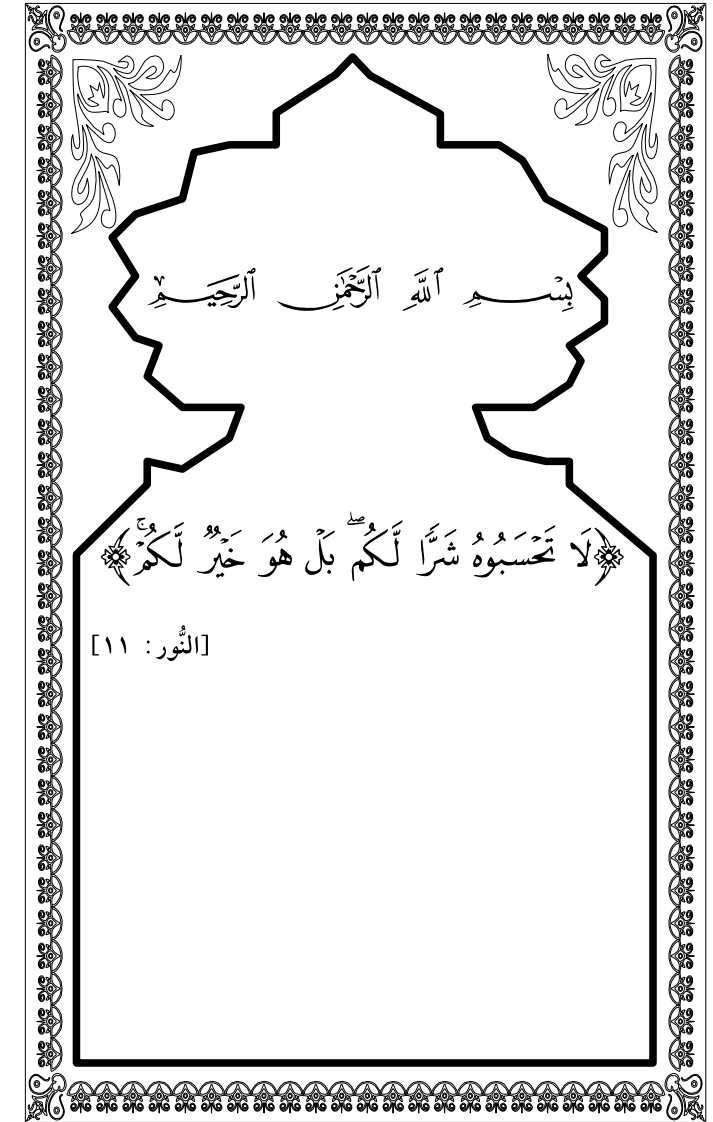 بِسْمِ ٱللَّهِ ٱلرَّحْمَٰنِ ٱلرَّحِيمِ
﴿لَا تَحْسَبُوهُ شَرًّا لَّكُم ۖ بَلْ هُوَ خَيْرٌ لَّكُمْ ۚ﴾
[النُّور: ١١]